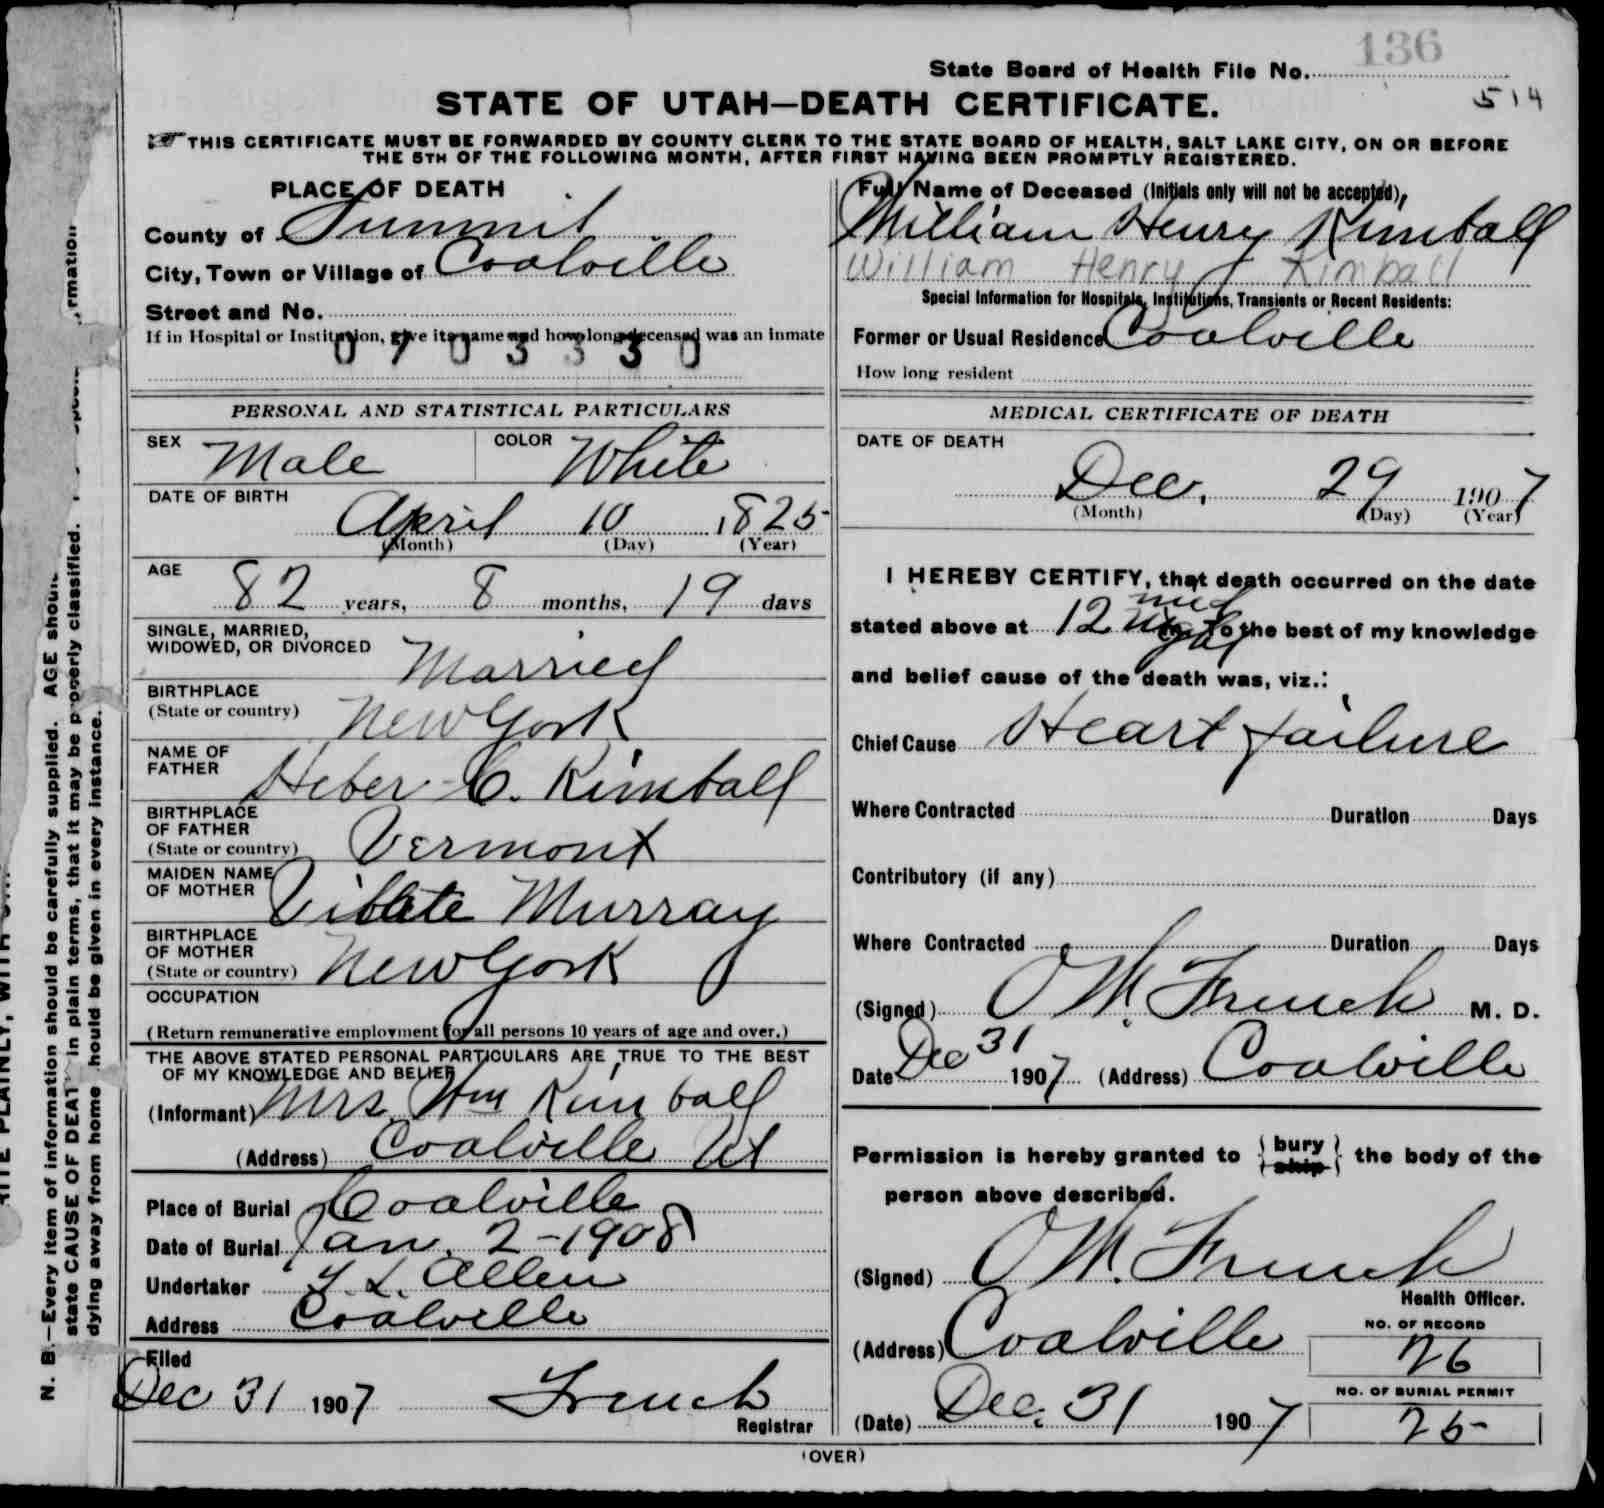 136
State Board of Health File No.
514
STATE OF UTAH—DEATH CERTIFICATE.
THIS CERTIFICATE MUST BE FORWARDED BY COUNTY CLERK TO THE STATE BOARD OF HEALTH, SALT LAKE CITY, ON OR BEFORE
THE 5TH OF THE FOLLOWING MONTH, AFTER FIRST HAVING BEEN PROMPTLY REGISTERED.
PLACE OF DEATH
County of Summit
City, Town or Village of Coalville
Street and No.
If in Hospital or Institution, give its name and how long deceased was an inmate
0703330
Full Name of Deceased (Initials only will not be accepted),
William Henry Kimball
William Henry Kimball
Special Information for Hospitals, Institutions, Transients or Recent Residents:
Former or Usual Residence Coalville
How long resident
PERSONAL AND STATISTICAL PARTICULARS
SEX Male COLOR White
DATE OF BIRTH
April 10 1825
(Month) (Day) (Year)
AGE
82 years, 8 months, 19 days
SINGLE, MARRIED,
WIDOWED, OR DIVORCED Married
BIRTHPLACE
(State or country) New York
NAME OF
FATHER Heber C. Kimball
BIRTHPLACE
OF FATHER
(State or country) Vermont
MAIDEN NAME
OF MOTHER Vilate Murray
BIRTHPLACE
OF MOTHER
(State or country) New York
OCCUPATION
(Return remunerative employment for all persons 10 years of age and over.)
THE ABOVE STATED PERSONAL PARTICULARS ARE TRUE TO THE BEST
OF MY KNOWLEDGE AND BELIEF
(Informant) Mrs. Wm Kimball
(Address) Coalville Ut
Place of Burial Coalville
Date of Burial Jan. 2-1908
Undertaker Y. L. Allen
Address Coalville
Filed
Dec 31 1907 French
Registrar
MEDICAL CERTIFICATE OF DEATH
DATE OF DEATH
Dec. 29 1907
(Month) (Day) (Year)
I HEREBY CERTIFY, that death occurred on the date
stated above at 12 mid night To the best of my knowledge
and belief cause of the death was, viz.:
Chief Cause Heart failure
Where Contracted Duration Days
Contributory (if any)
Where Contracted Duration Days
(Signed) O M. French M. D.
Date Dec 31 1907 (Address) Coalville
Permission is hereby granted to { bury ship } the body of the
person above described.
(Signed) O M. French
Health Officer.
(Address) Coalville
NO. OF RECORD
26
(Date) Dec. 31 1907
NO. OF BURIAL PERMIT
25
(OVER)
N. B.—Every item of information should be carefully supplied. AGE should
state CAUSE OF DEATH in plain terms, that it may be properly classified.
dying away from home should be given in every instance.